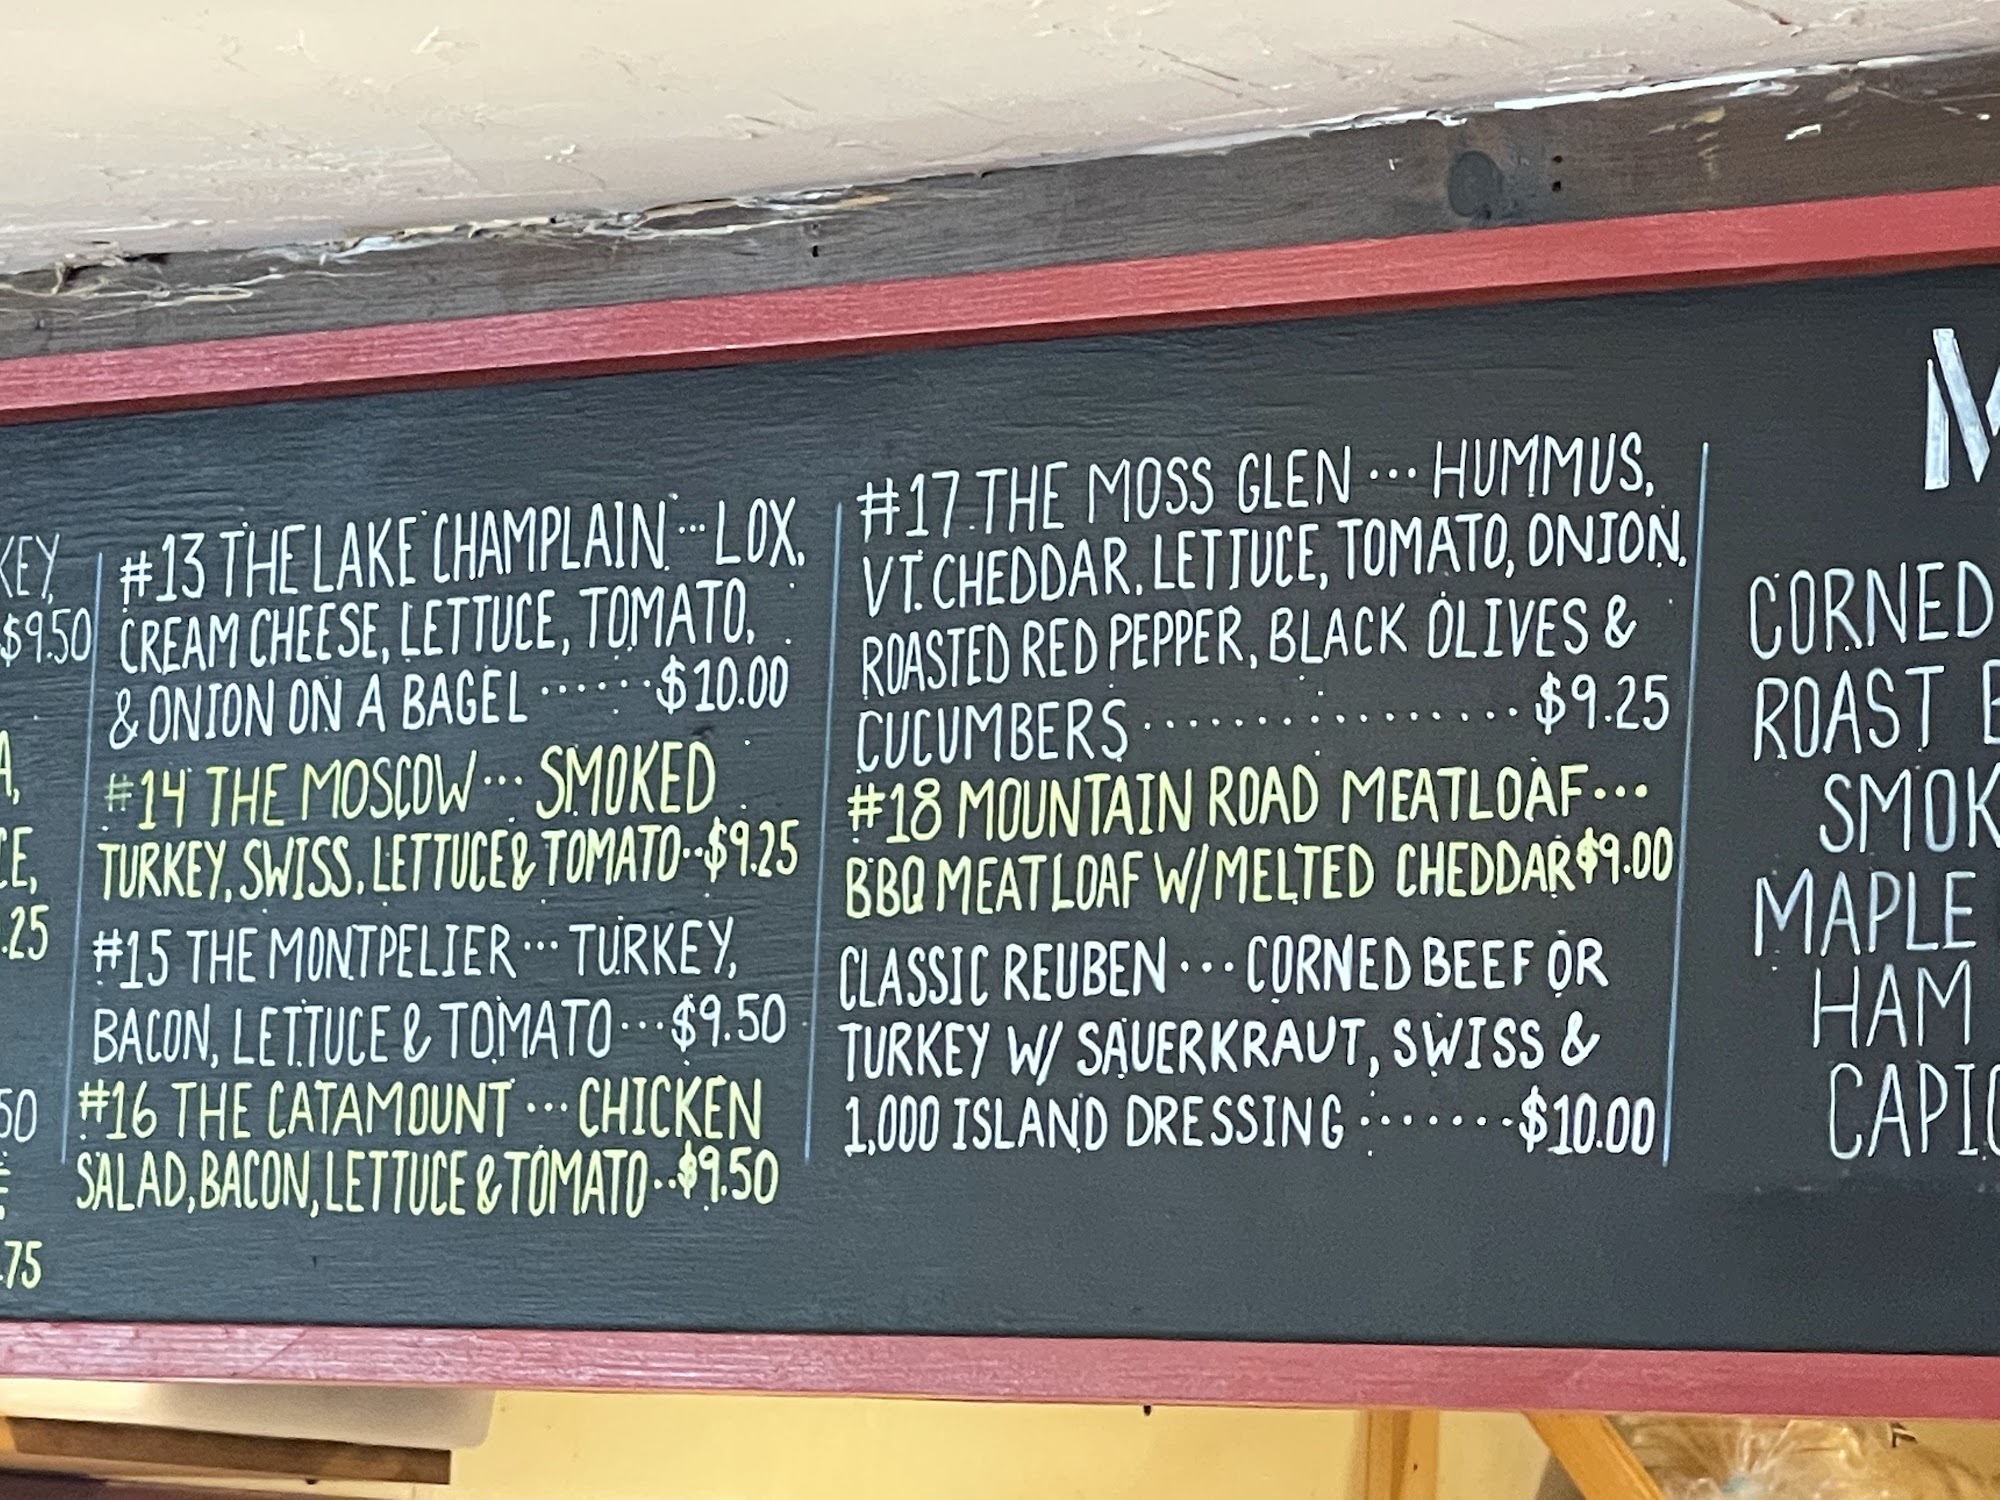 KEY,
$9.50
.25
50
.75
#13 THE LAKE CHAMPLAIN ... LOX,
CREAM CHEESE, LETTUCE, TOMATO,
& ONION ON A BAGEL ...... $10.00
#14 THE MOSCOW ... SMOKED
TURKEY, SWISS, LETTUCE & TOMATO .. $9.25
#15 THE MONTPELIER ... TURKEY,
BACON, LETTUCE & TOMATO ... $9.50
#16 THE CATAMOUNT ... CHICKEN
SALAD, BACON, LETTUCE & TOMATO .. $9.50
#17 THE MOSS GLEN ... HUMMUS,
VT. CHEDDAR, LETTUCE, TOMATO, ONION,
ROASTED RED PEPPER, BLACK OLIVES &
CUCUMBERS ................. $9.25
#18 MOUNTAIN ROAD MEATLOAF ...
BBQ MEATLOAF W/MELTED CHEDDAR $9.00
CLASSIC REUBEN ... CORNED BEEF OR
TURKEY W/ SAUERKRAUT, SWISS &
1,000 ISLAND DRESSING ....... $10.00
CORNED
ROAST
SMOK
MAPLE
HAM